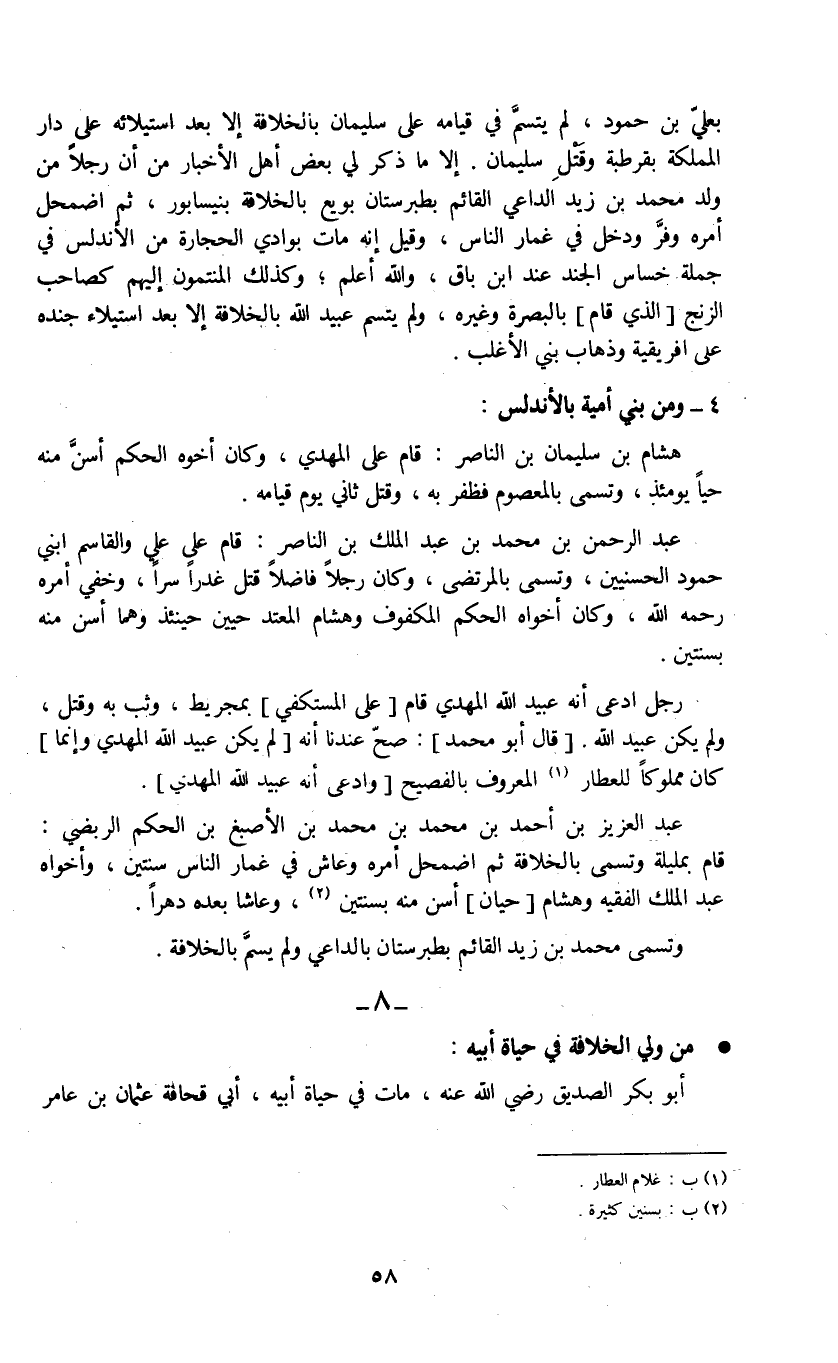 بعليّ بن حمود ، لم يتسمَّ في قيامه على سليمان بالخلافة إلا بعد استيلائه على دار
المملكة بقرطبة وقَتْلِ سليمان . إلا ما ذكر لي بعض أهل الأخبار من أن رجلاً من
ولد محمد بن زيد الداعي القائم بطبرستان بويع بالخلافة بنيسابور ، ثم اضمحل
أمره وفرَّ ودخل في غمار الناس ، وقيل إنه مات بوادي الحجارة من الأندلس في
جملة خساس الجند عند ابن باق ، والله أعلم ؛ وكذلك المنتمون إليهم كصاحب
الزنج [ الذي قام ] بالبصرة وغيره ، ولم يتسم عبيد الله بالخلافة إلا بعد استيلاء جنده
على افريقية وذهاب بني الأغلب .
٤ ـ ومن بني أمية بالأندلس :
هشام بن سليمان بن الناصر : قام على المهدي ، وكان أخوه الحكم أسنَّ منه
حياً يومئذٍ ، وتسمى بالمعصوم فظفر به ، وقتل ثاني يوم قيامه .
عبد الرحمن بن محمد بن عبد الملك بن الناصر : قام على علي والقاسم ابني
حمود الحسنيين ، وتسمى بالمرتضى ، وكان رجلاً فاضلاً قتل غدراً سراً ، وخفي أمره
رحمه الله ، وكان أخواه الحكم المكفوف وهشام المعتد حيين حينئذ وهما أسن منه
بسنتين .
رجل ادعى أنه عبيد الله المهدي قام [ على المستكفي ] بمجريط ، وثب به وقتل ،
ولم يكن عبيد الله . [ قال أبو محمد ] : صحّ عندنا أنه [ لم يكن عبيد الله المهدي وإنما ]
كان مملوكاً للعطار (١) المعروف بالفصيح [ وادعى أنه عبيد الله المهدي ] .
عبد العزيز بن أحمد بن محمد بن محمد بن الأصبغ بن الحكم الربضي :
قام بمليلة وتسمى بالخلافة ثم اضمحل أمره وعاش في غمار الناس سنتين ، وأخواه
عبد الملك الفقيه وهشام [ حيان ] أسن منه بسنتين (٢) ، وعاشا بعده دهراً .
وتسمى محمد بن زيد القائم بطبرستان بالداعي ولم يسمَّ بالخلافة .
ـ ٨ ـ
● من ولي الخلافة في حياة أبيه :
أبو بكر الصديق رضي الله عنه ، مات في حياة أبيه ، أبي قحافة عثمان بن عامر
(١) ب : غلام العطار .
(٢) ب : بسنين كثيرة .
٥٨